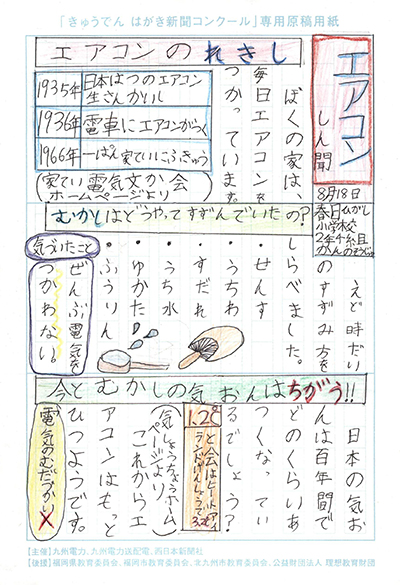 「きゅうでん はがき新聞コンクール」専用原稿用紙
エアコン
しん聞
8月18日
春日ひがし
小学校
2年4組
エアコンのれきし
ぼくの家は、
毎日エアコンを
つかっています。
1935年 日本はつのエアコン
生さんかいし
1936年 電車にエアコンがつく
1966年 一ぱん家ていにふきゅう
(家てい電気文か会
ホームページより)
むかしはどうやってすずんでいたの?
えど時だい
のすずみ方を
しらべました。
・せんす
・うちわ
・すだれ
・うち水
・ゆかた
・ふうりん
気づいたこと
ぜんぶ電気を
つかわない。
今とむかしの気おんはちがう!!
日本の気お
んは百年間で
どのくらいあ
つくなってい
るでしょう?
1.2℃
と会はヒートアイ
ランドげんしょうで3℃
(気しょうちょうホーム
ページより)
これからエ
アコンはもっと
ひつようです。
電気のむだづかい×
【主催】九州電力、九州電力送配電、西日本新聞社
【後援】福岡県教育委員会、福岡市教育委員会、北九州市教育委員会、公益財団法人 理想教育財団